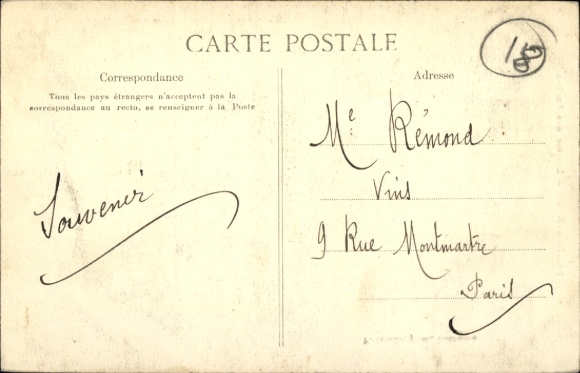 CARTE POSTALE
Correspondance
Tous les pays étrangers n'acceptent pas la
correspondance au recto, se renseigner à la Poste
Souvenir
Adresse
Me Rémond
Vins
9 Rue Montmartre
Paris